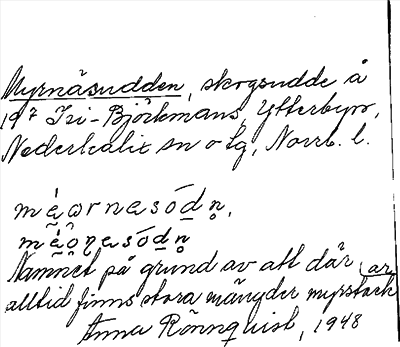 Myrnäsudden, skogsudde å
19² Fri-Björkmans, Ytterbyn,
Nederkalix sn o lg, Norrb. l.
Namnet på grund av att där
alltid finns stora mängder myrstack(ar
Anna Rönnquist, 1948